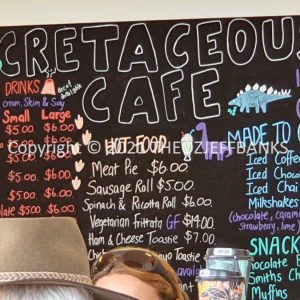 CRETACEOU
CAFE
DRINKS
decaf
available
cream, Skim & Soy
Small Large
$5.00 $6.00
$5.00 $6.00
$6.00
$5.00 $6.00
$5.00 $6.00
$5.00 $6.00
late $5.00 $6.00
HOT FOOD
Meat Pie $6.00
Sausage Roll $5.00
Spinach & Ricotta Roll $6.00
Vegetarian frittata GF $14.00
Ham & Cheese Toastie $7.00
Toastie $7.00
available
MADE TO
Iced Coffe
Iced Choco
Iced Chai
Milkshakes
(chocolate, caram
strawberry, lime)
SNACK
Chocolate B
Smiths Ch
Muffins
Copyright © 2020 THEOZJEFFBANKS.